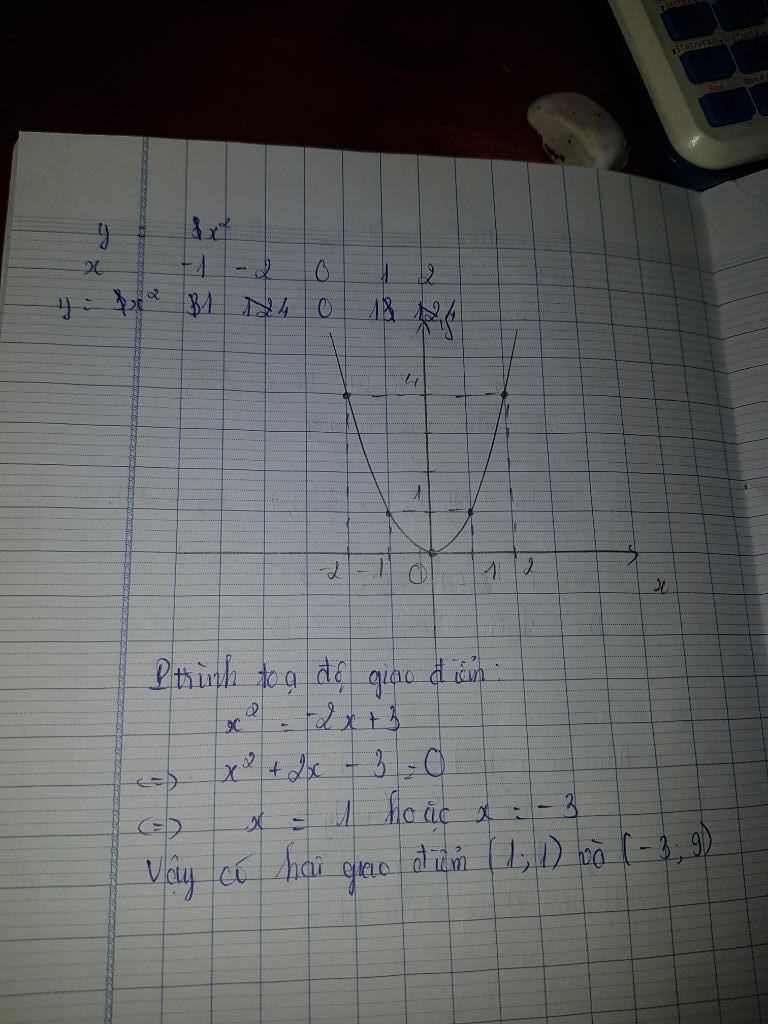 y = x²
x -1 -2 0 1 2
y = x² 1 4 0 1 4
y
4
1
-2 -1 0 1 2
x
Ptrình toạ độ giao điểm:
x² = -2x + 3
<=> x² + 2x - 3 = 0
<=> x = 1 hoặc x = -3
Vậy có hai giao điểm (1; 1) và (-3; 9)